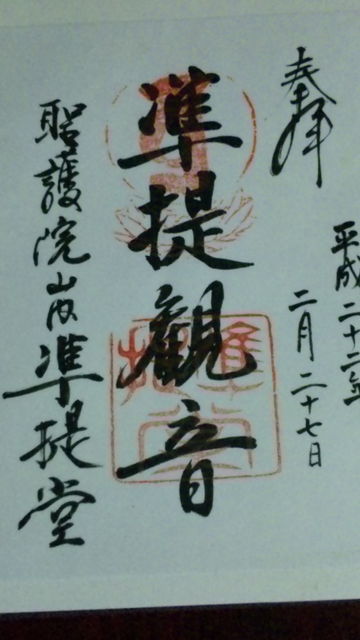 奉拝
平成二十二年
二月二十七日
準提観音
聖護院山内準提堂